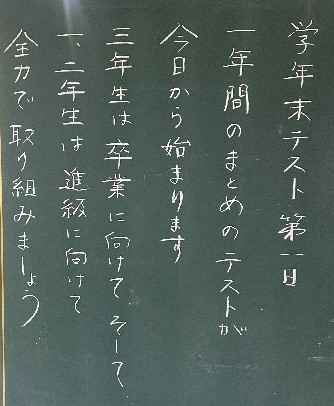 学年末テスト第一日
一年間のまとめのテストが
今日から始まります
三年生は卒業に向けて、そして
一、二年生は進級に向けて
全力で取り組みましょう